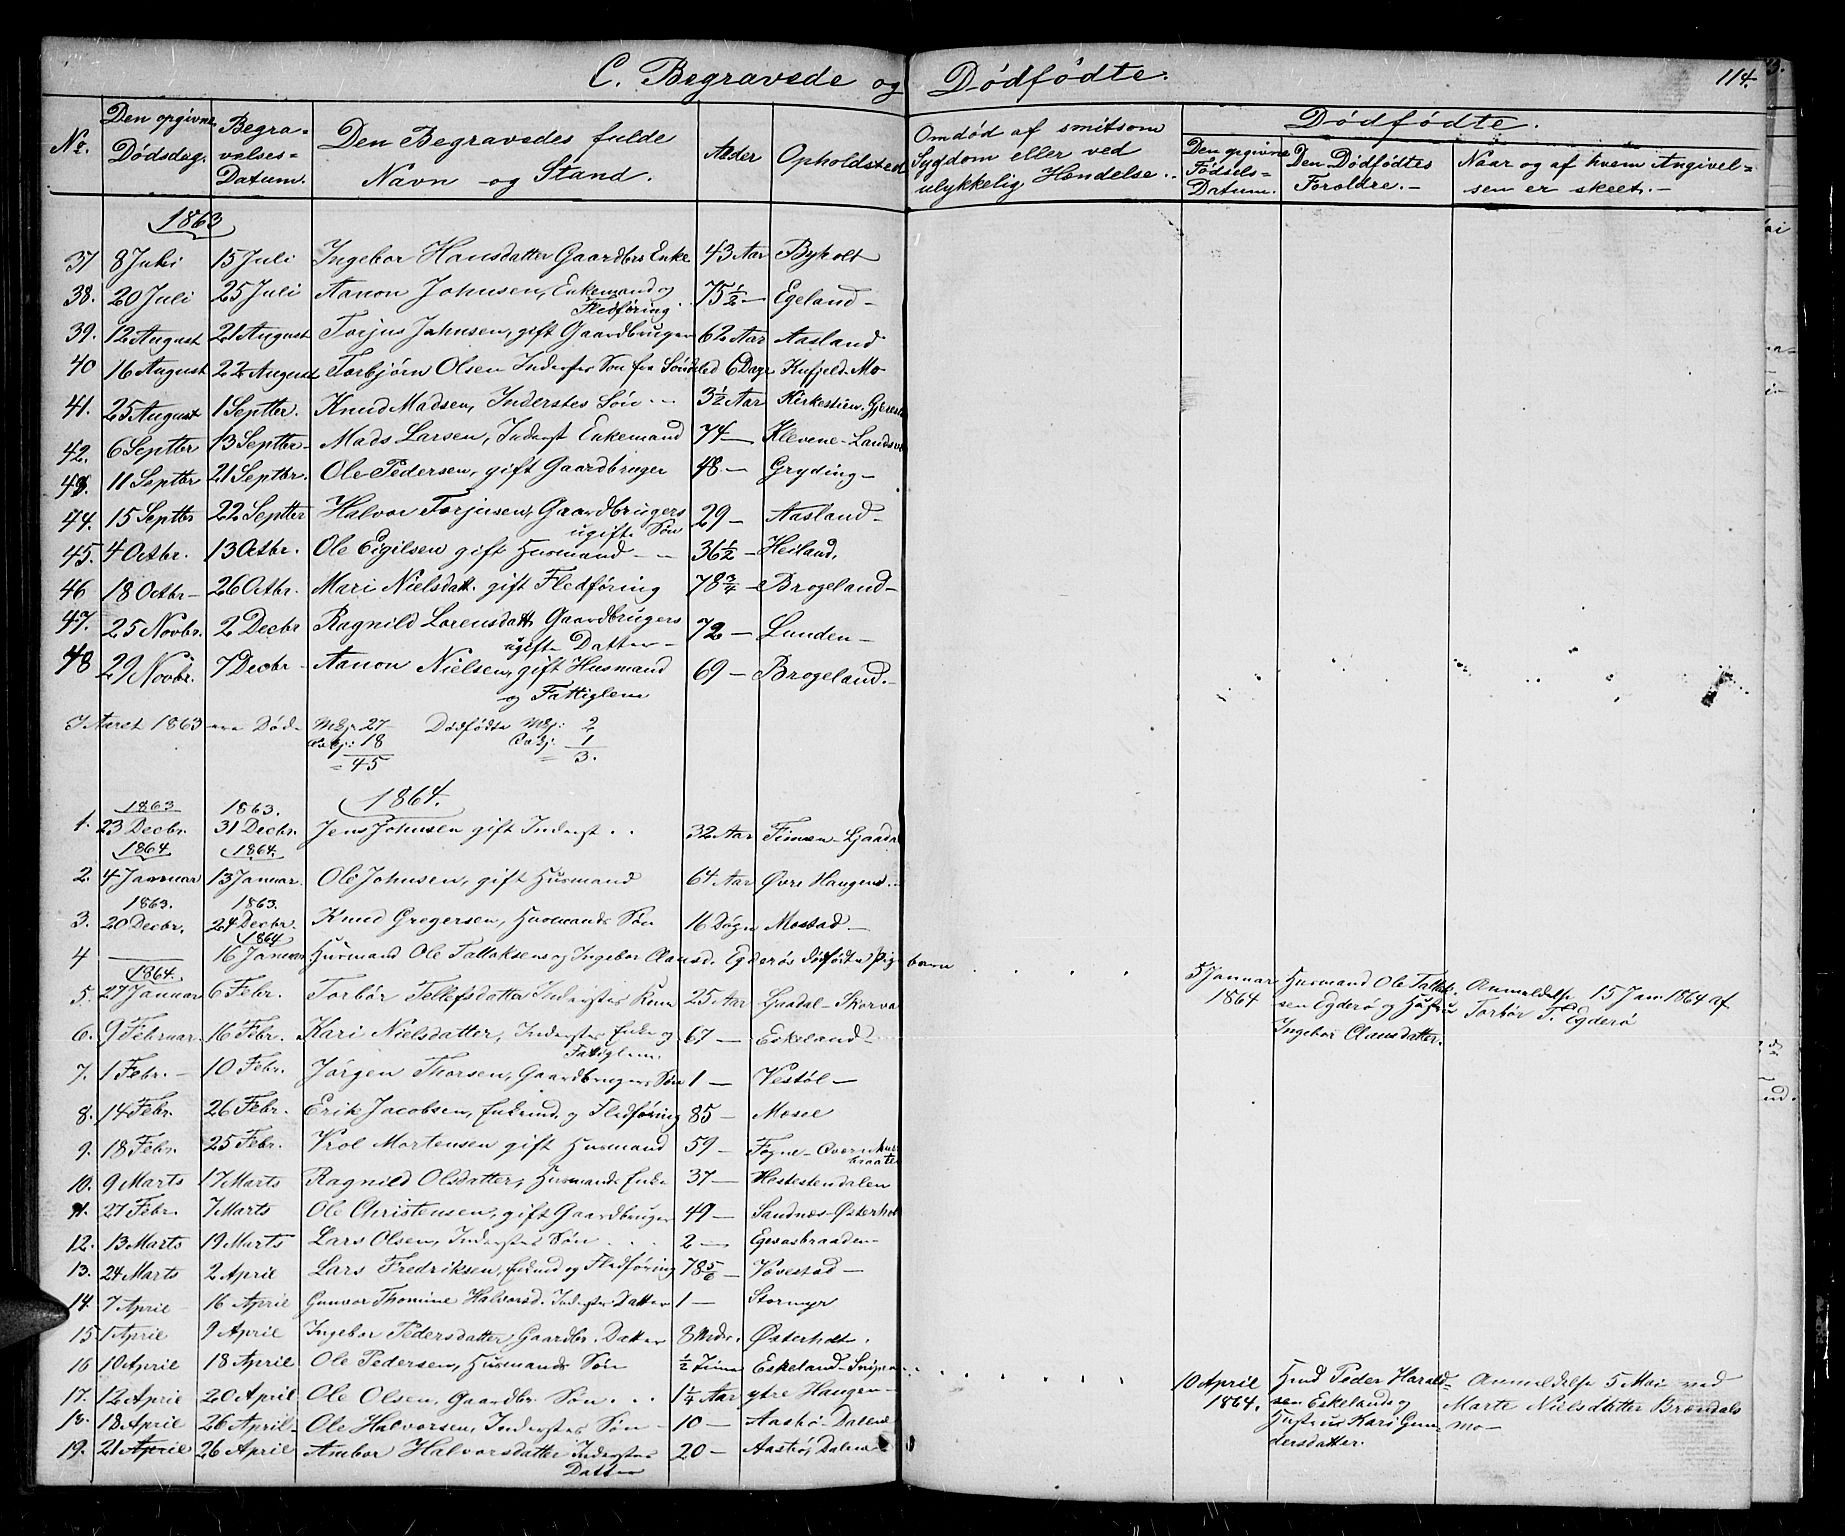 C. Begravede og Dødfødte.
114.
No. Den opgivne Dødsdag. Begravelses-Datum. Den Begravedes fulde Navn og Stand. Alder Opholdsted Omdød af smitsom Sygdom eller ved ulykkelig Hændelse. Dødfødte.
Den opgivne Fødsels-Datum. Den Dødfødtes Forældre. Naar og af hvem Angivelsen er skeet.
1863
37 8 Juli 15 Juli Ingebor Hansdatter Gaardbrs Enke 43 Aar Byholt
38. 20 Juli 25 Juli Aanon Johnsen, Enkemand og Fledføring 75 1/2 — Egeland
39. 12 August 21 August Torjus Johnsen, gift Gaardbruger 62 Aar Aasland
40 16 August 22 August Torbjørn Olsen Inderstes Søn fra Søndeled 6 Dage Mo
41. 25 August 1 Septbr. Knud Madsen, Inderstes Søn 3 1/2 Aar
42. 6 Septbr 13 Septbr Mads Larsen, Inderst Enkemand 74 — Klevene
43. 11 Septbr 21 Septbr. Ole Pedersen, gift Gaardbruger 48 — Gryting
44. 15 Septbr 22 Septbr Halvor Torjusen, Gaardbrugers ugifte Søn 29 — Aasland
45. 4 Octbr. 13 Octbr. Ole Eigilsen gift Husmand 36 1/2 — Heiland.
46 18 Octbr 26 Octbr. Mari Nielsdatt. gift Fledføring 78 3/4 — Brogeland
47. 25 Novbr. 2 Decbr Ragnild Lorensdatt. Gaardbrugers ugifte Datter 72 — Lunden
48 29 Novbr. 7 Decbr Aanon Nielsen, gift Husmand og Fattiglem 69 — Brogeland.
I Aaret 1863 ere Døde Mkj. 27 Dødfødte Mkj: 2
Qvkj: 18 Qvkj. 1
= 45 = 3.
1864.
1863 1863.
1. 23 Decbr. 31 Decbr. Jens Johnsen gift Inderst 32 Aar
1864 1864.
2. 4 Januar 13 Januar. Ole Johnsen, gift Husmand 64 Aar Øvre Haugen
1863. 1863.
3. 20 Decbr. 24 Decbr. Knud Gregersen, Husmands Søn 16 Døgn Mostad
1864
4 — 16 Januar Husmand Ole Tallaksens og Ingebor Clausd. Egderøs dødfødte Pigebarn 5 Januar 1864 Husmand Ole Tallaksen Egderø og Hustru Ingebor Clausdatter. Anmeldelse 15 Jan 1864 af Torbør T. Egderø
1864.
5. 27 Januar 6 Febr. Torbør Tellefsdatter Inderstes Kone 25 Aar
6. 9 Februar 16 Febr. Kari Nielsdatter, Inderstes Enke og Fattiglem. 67 — Eskeland
7. 1 Febr. 10 Febr. Jørgen Thorsen, Gaardbrugers Søn 1 — Vestøl
8. 14 Febr. 26 Febr. Erik Jacobsen, Enkemd. og Fledføring 85 — Moene
9. 18 Febr. 25 Febr. Vrol Mortensen gift Husmand 59 — Fogne
10. 9 Marts 17 Marts Ragnild Olsdatter, Husmands Enke 37 — Hestestendalen
11. 27 Febr. 7 Marts Ole Christensen, gift Gaardbruger 49 — Sandnæs-Østerholt
12. 13 Marts 19 Marts Lars Olsen, Inderstes Søn 2 — Egeaasbraaden
13. 24 Marts 2 April Lars Fredriksen, Enkmd og Fledføring 78 5/6 — Vovestad
14. 7 April 16 April Gunvor Thomine Halvorsd. Inderstes Datter 1 — Stormyr
15 1 April 9 April Ingebor Pedersdatter, Gaardbr. Datter 8 Mdr. Østerholt.
16 10 April 18 April Ole Pedersen, Husmands Søn 1/2 Time Eskeland 10 April 1864. Husmd Peder Haraldsen Eskeland og Hustru Kari Gundersdatter. Anmeldelse 5 Mai ved Marte Nielsdatter Brændals mo
17. 12 April 20 April Ole Olsen, Gaardbr. Søn 1 1/4 Aar ytre Haugen
18. 18 April 26 April Ole Halvorsen, Inderstes Søn 10 — Aasbø Dalene
19. 21 April 26 April Ambor Halvorsdatter Inderstes Datter 20 — Aasbø, Dalene